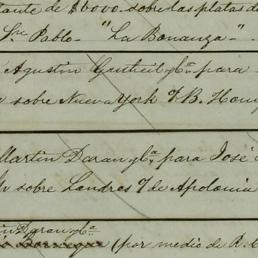 tante de $6000. sobre las platas de
Sn. Pablo - "La Bonanza".
Agustin Gutheil y Ca. para
sobre Nueva York 7 B.
Martin Daran y Ca. para José
sobre Londres 7 de Apolonia
Daran y Ca.
(por medio de R.